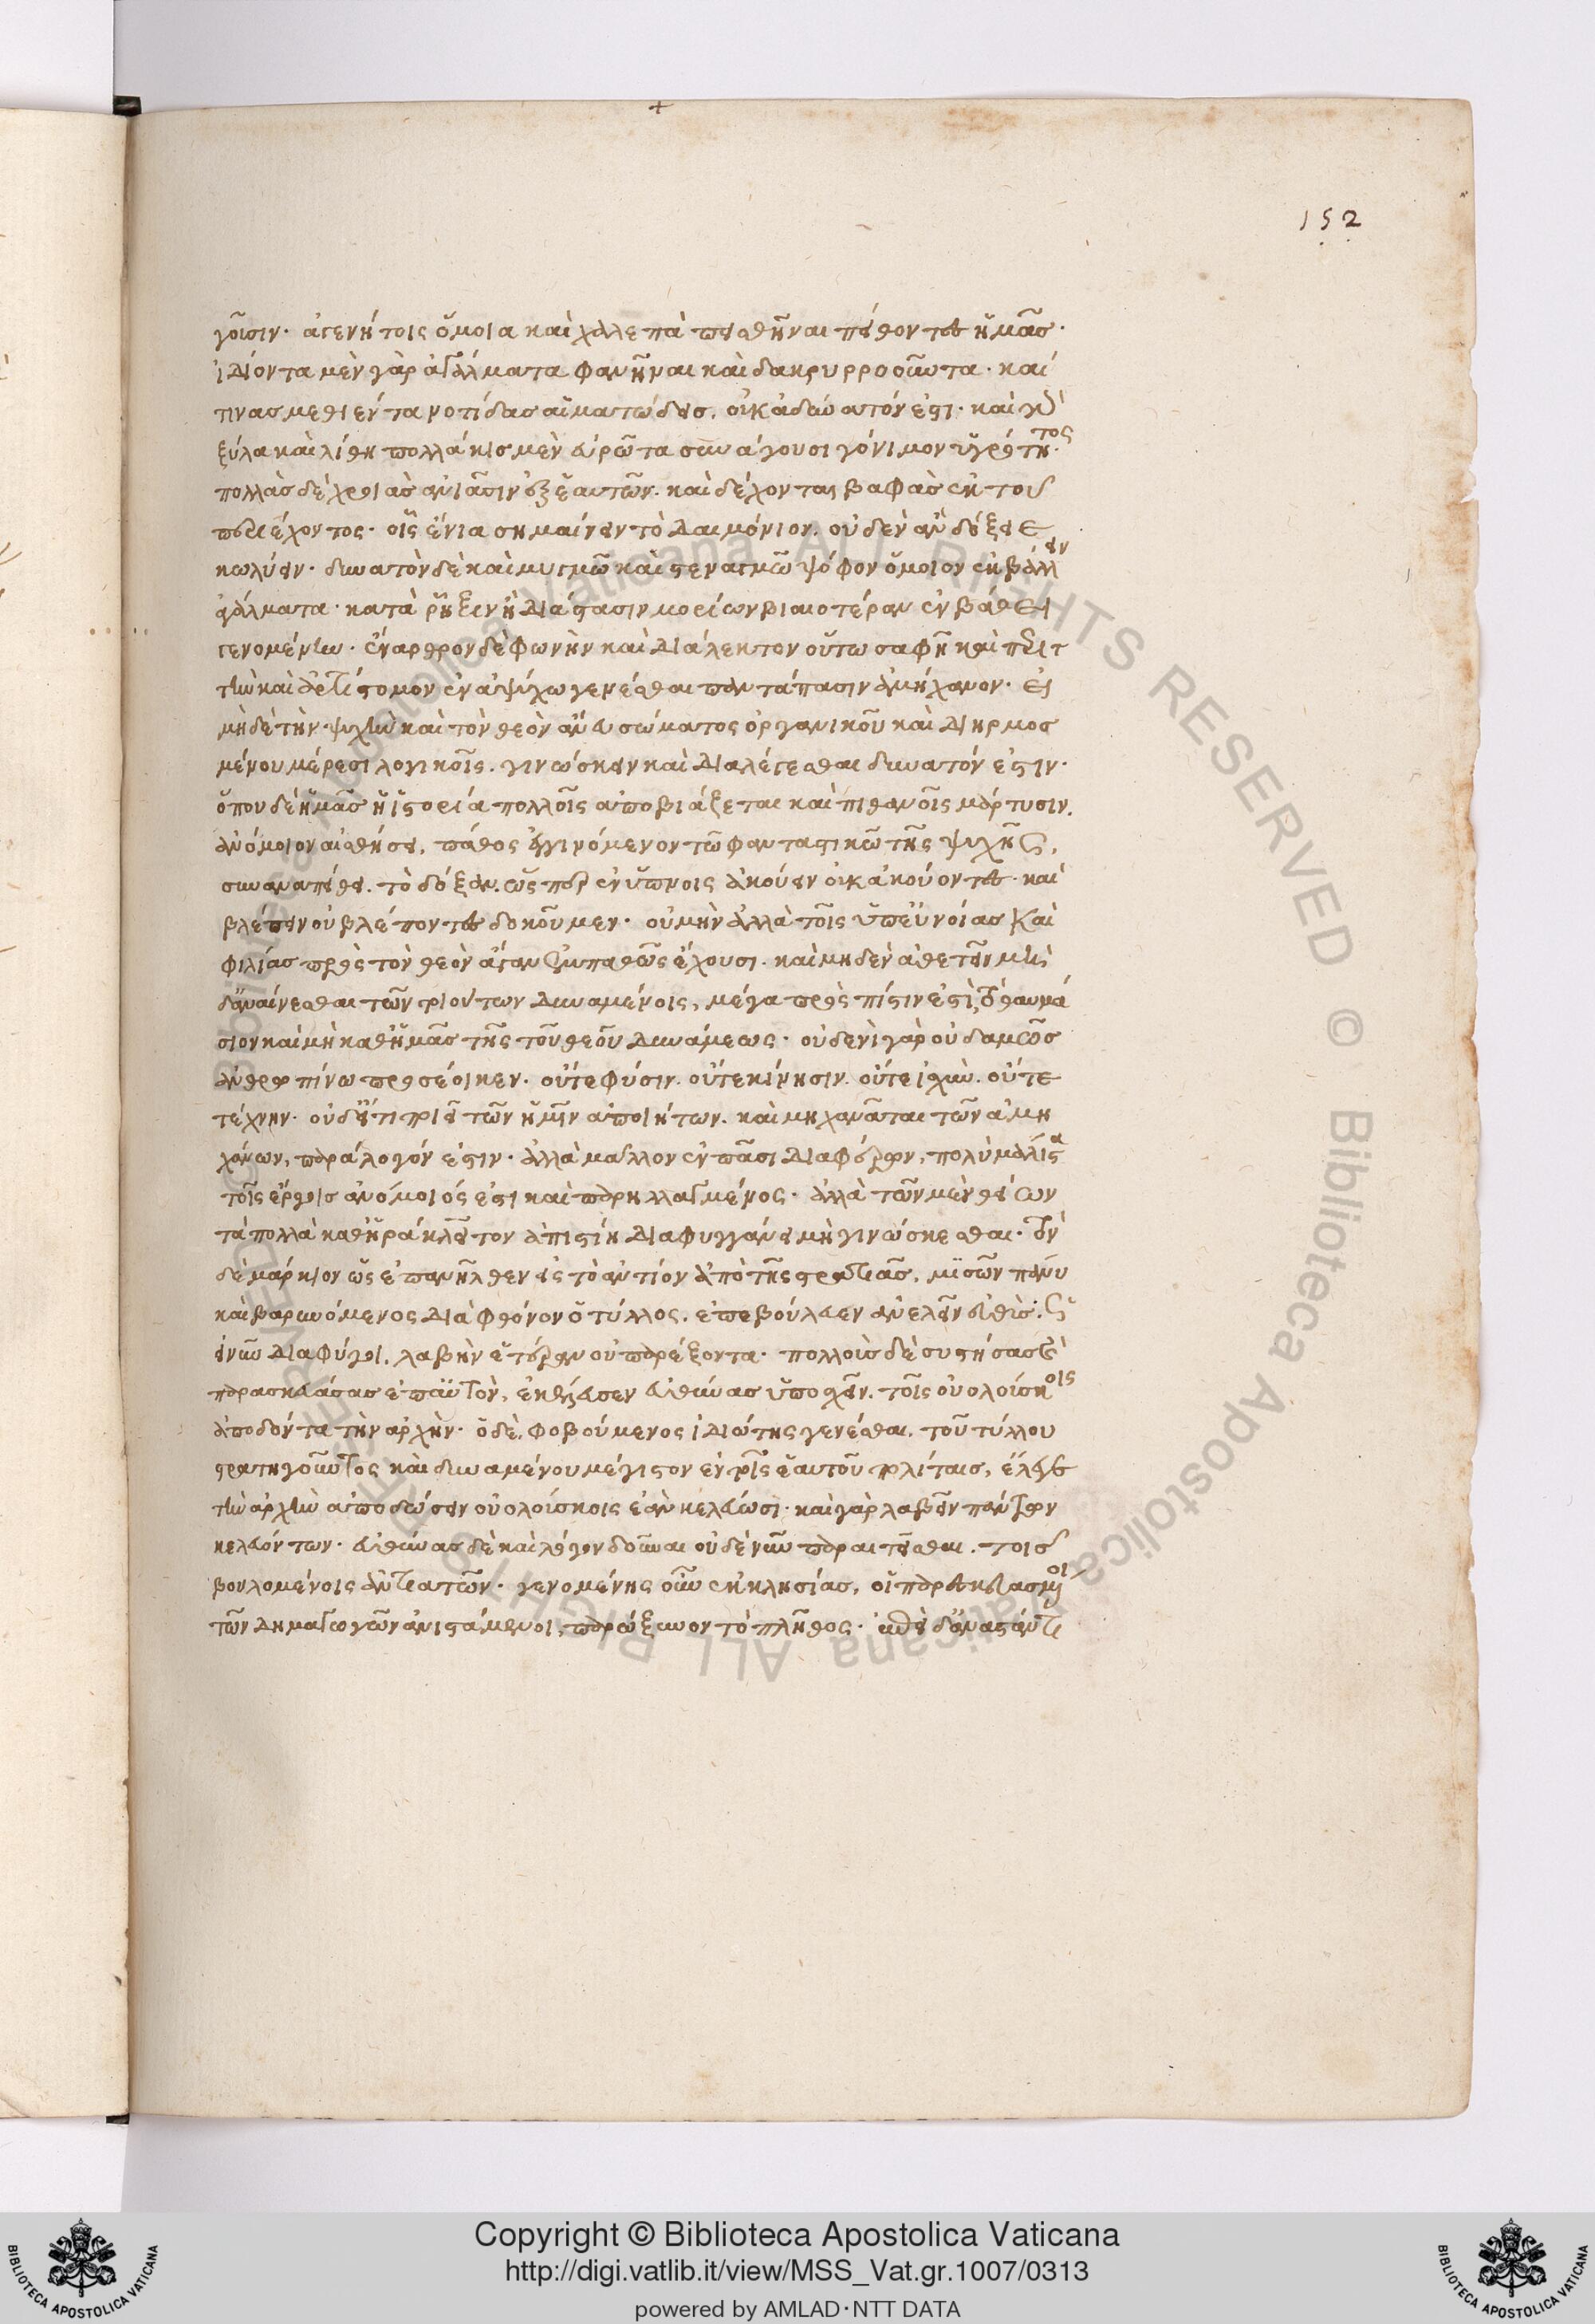 152
γοῦσιν· ἀγενήτοις ὅμοια καὶ χαλεπὰ πεισθῆναι πείθοντες ἡμᾶς·
ἰδίοντα μὲν γὰρ ἀγάλματα φανῆναι καὶ δακρυρροοῦντα· καί
τινας μεθιέντα νοτίδας αἱματώδεις, οὐκ ἀδύνατόν ἐστι· καὶ γὰρ
ξύλα καὶ λίθοι πολλάκις μὲν εὐρῶτα συνάγουσι γόνιμον ὑγρότητος·
πολλὰς δὲ χροιὰς ἀνιᾶσιν ἐξ ἑαυτῶν· καὶ δέχονται βαφὰς ἐκ τοῦ
περιέχοντος· οἷς ἔνια σημαίνειν τὸ δαιμόνιον, οὐδὲν ἂν δόξειε
κωλύειν· δυνατὸν δὲ καὶ μυγμῶ καὶ στεναγμῶ ψόφον ὅμοιον ἐκβάλλειν
ἀγάλματα· κατὰ ῥῆξιν ἢ διάστασιν μορίων βιαιοτέραν ἐν βάθει
γενομένην· ἔναρθρον δὲ φωνὴν καὶ διάλεκτον οὕτω σαφῆ καὶ περιτ
τὴν καὶ ἀρτίστομον ἐν ἀψύχω γενέσθαι παντάπασιν ἀμήχανον· εἰ
μὴδὲ τὴν ψυχὴν καὶ τὸν θεὸν ἄνευ σώματος ὀργανικοῦ καὶ διηρμοσ
μένου μέρεσι λογικοῖς, γινώσκειν καὶ διαλέγεσθαι δυνατόν ἐστιν·
ὅπου δὲ ἡμᾶς ἡ ἱστορία πολλοῖς ἀποβιάζεται καὶ πιθανοῖς μάρτυσιν,
ἀνόμοιον αἰσθήσει, πάθος ἐγγινόμενον τῶ φανταστικῶ τῆς ψυχῆς,
συναναπείθει τὸ δόξαν, ὥσπερ ἐν ὕπνοις ἀκούειν οὐκ ἀκούοντες· καὶ
βλέπειν οὐ βλέποντες δοκοῦμεν· οὐ μὴν ἀλλὰ τοῖς ὑπ' εὐνοίας καὶ
φιλίας πρὸς τὸν θεὸν ἄγαν ἐμπαθῶς ἔχουσι· καὶ μηδὲν ἀθετεῖν μηδ'
ἀναίνεσθαι τῶν τοιούτων δυναμένοις, μέγα πρὸς πίστιν ἐστὶ, τὸ θαυμά
σιον καὶ μὴ καθ' ἡμᾶς τῆς τοῦ θεοῦ δυνάμεως· οὐδενὶ γὰρ οὐδαμῶς
ἀνθρωπίνω προσέοικεν· οὔτε φύσιν, οὔτε κίνησιν, οὔτε ἰσχὺν, οὔτε
τέχνην· οὐδ' εἴ τι ποιεῖ τῶν ἡμῖν ἀποιήτων, καὶ μηχανᾶται τῶν ἀμη
χάνων, παράλογόν ἐστιν· ἀλλὰ μᾶλλον ἐν πᾶσι διαφέρων, πολὺ μάλιστα
τοῖς ἔργοις ἀνόμοιός ἐστι καὶ παρηλλαγμένος· ἀλλὰ τῶν μὲν θείων
τὰ πολλὰ καθ' ἡράκλειτον ἀπιστίη διαφυγγάνει μὴ γινώσκεσθαι· τὸν
δὲ μάρκιον ὡς ἐπανῆλθεν εἰς τὸ ἄντιον ἀπὸ τῆς στρατείας, μισῶν πάλαι
καὶ βαρυνόμενος διὰ φθόνον ὁ τύλλος, ἐπεβούλευεν ἀνελεῖν εὐθὺς·
εἰ νῦν διαφύγοι, λαβὴν ἑτέραν οὐ παρέξοντα· πολλοὺς δὲ συστήσας καὶ
παρασκευάσας ἐπ' αὐτὸν, ἐκέλευσεν εὐθύνας ὑποσχεῖν τοῖς οὐολούσκοις
ἀποδόντα τὴν ἀρχὴν· ὁ δὲ, φοβούμενος ἰδιώτης γενέσθαι, τοῦ τύλλου
στρατηγοῦντος καὶ δυναμένου μέγιστον ἐν τοῖς ἑαυτοῦ πολίταις, ἔλεγε
τὴν ἀρχὴν ἀποδώσειν οὐολούσκοις ἐὰν κελεύωσι· καὶ γὰρ λαβεῖν πάντων
κελευόντων· εὐθύνας δὲ καὶ λόγον διδόναι οὐδὲ νῦν παραιτεῖσθαι τοῖς
βουλομένοις ἀντιατῶν· γενομένης οὖν ἐκκλησίας, οἱ παρεσκευασμένοι
τῶν δημαγωγῶν ἀνιστάμενοι, παρώξυνον τὸ πλῆθος· ἐπεὶ δ' ἀναστάντι
Copyright © Biblioteca Apostolica Vaticana
http://digi.vatlib.it/view/MSS_Vat.gr.1007/0313
powered by AMLAD·NTT DATA